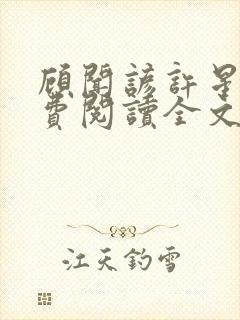 顧聞諺許星
費閱讀全文
江天釣雪